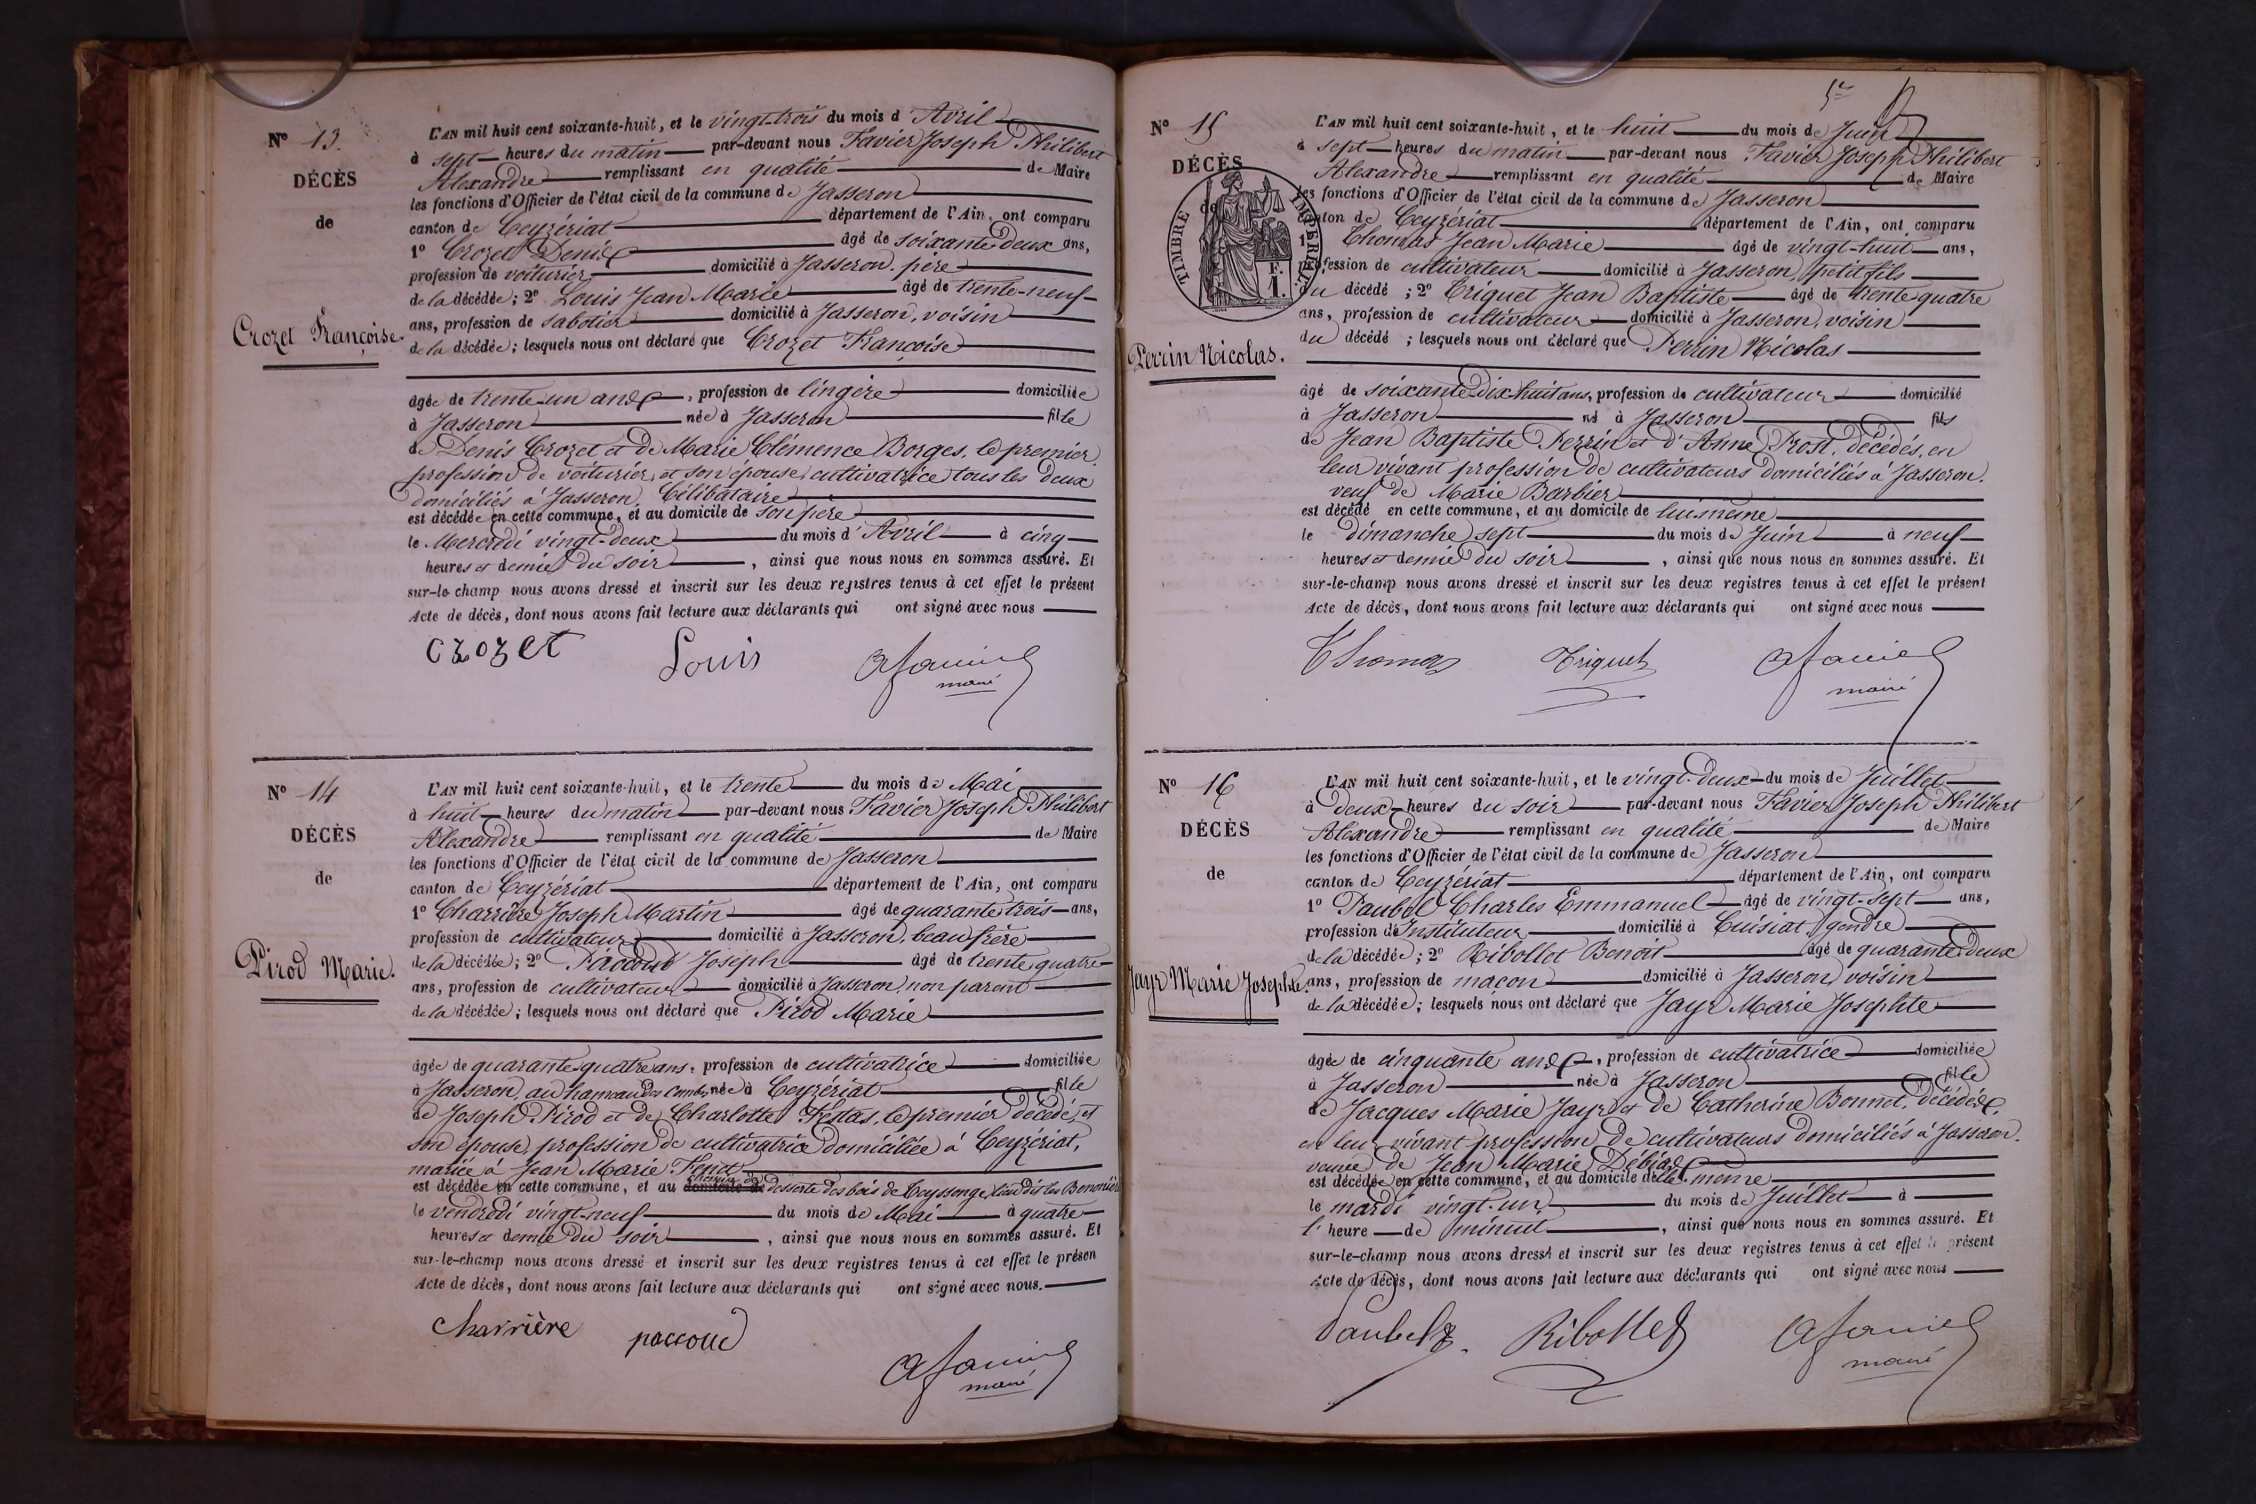 Nº 13.
DÉCÈS
de
Crozet Françoise.
L'AN mil huit cent soixante-huit, et le vingt-trois du mois d'Avril
à sept heures du matin par-devant nous Favier Joseph Philibert
Alexandre remplissant en qualité de Maire
les fonctions d'Officier de l'état civil de la commune de Jasseron
canton de Ceyzériat département de l'Ain, ont comparu
1º Crozet Denis âgé de soixante deux ans,
profession de voiturier domicilié à Jasseron, père
de la décédée; 2º Louis Jean Marie âgé de trente-neuf
ans, profession de sabotier domicilié à Jasseron, voisin
de la décédée; lesquels nous ont déclaré que Crozet Françoise
âgée de trente-un ans, profession de lingère domiciliée
à Jasseron née à Jasseron fille
de Denis Crozet et de Marie Clémence Borges, le premier
profession de voiturier, et son épouse, cultivatrice tous les deux
domiciliés à Jasseron. Célibataire
est décédée en cette commune, et au domicile de son père
le Mercredi vingt-deux du mois d'Avril à cinq
heures et demie du soir, ainsi que nous nous en sommes assuré. Et
sur-le-champ nous avons dressé et inscrit sur les deux registres tenus à cet effet le présent
Acte de décès, dont nous avons fait lecture aux déclarants qui ont signé avec nous
crozet Louis Afavier
maire
Nº 14
DÉCÈS
de
Pirod Marie.
L'AN mil huit cent soixante-huit, et le trente du mois de Mai
à huit heures du matin par-devant nous Favier Joseph Philibert
Alexandre remplissant en qualité de Maire
les fonctions d'Officier de l'état civil de la commune de Jasseron
canton de Ceyzériat département de l'Ain, ont comparu
1º Charrière Joseph Martin âgé de quarante trois ans,
profession de cultivateur domicilié à Jasseron, beau frère
de la décédée; 2º Paccoud Joseph âgé de trente quatre
ans, profession de cultivateur domicilié à Jasseron, non parent
de la décédée; lesquels nous ont déclaré que Pirod Marie
âgée de quarante quatre ans, profession de cultivatrice domiciliée
à Jasseron, au hameau des Combes née à Ceyzériat fille
de Joseph Pirod et de Charlotte Festas, le premier décédé, et
son épouse, profession de cultivatrice domiciliée à Ceyzériat,
mariée à Jean Marie
est décédée en cette commune, et au chemin de desserte des bois de Teyssonge, lieu dit les
le vendredi vingt-neuf du mois de Mai à quatre
heures et demie du soir, ainsi que nous nous en sommes assuré. Et
sur-le-champ nous avons dressé et inscrit sur les deux registres tenus à cet effet le présen
Acte de décès, dont nous avons fait lecture aux déclarants qui ont signé avec nous.
charrière paccoud Afavier
maire
Nº 15
DÉCÈS
de
TIMBRE IMPÉRIAL
F.
1.
Perrin Nicolas.
L'AN mil huit cent soixante-huit, et le huit du mois de Juin
à sept heures du matin par-devant nous Favier Joseph Philibert
Alexandre remplissant en qualité de Maire
les fonctions d'Officier de l'état civil de la commune de Jasseron
canton de Ceyzériat département de l'Ain, ont comparu
1º Thomas Jean Marie âgé de vingt-huit ans,
profession de cultivateur domicilié à Jasseron, petit fils
du décédé; 2º Triquet Jean Baptiste âgé de trente quatre
ans, profession de cultivateur domicilié à Jasseron, voisin
du décédé; lesquels nous ont déclaré que Perrin Nicolas
âgé de soixante dix huit ans, profession de cultivateur domicilié
à Jasseron né à Jasseron fils
de Jean Baptiste Perrin et d'Anne Prost, décédés, en
leur vivant profession de cultivateurs domiciliés à Jasseron.
veuf de Marie Barbier
est décédé en cette commune, et au domicile de lui même
le dimanche sept du mois de Juin à neuf
heures et demie du soir, ainsi que nous nous en sommes assuré. Et
sur-le-champ nous avons dressé et inscrit sur les deux registres tenus à cet effet le présent
Acte de décès, dont nous avons fait lecture aux déclarants qui ont signé avec nous
Thomas Triquet Afavier
maire
Nº 16
DÉCÈS
de
Jayr Marie Josephte.
L'AN mil huit cent soixante-huit, et le vingt-deux du mois de Juillet
à deux heures du soir par-devant nous Favier Joseph Philibert
Alexandre remplissant en qualité de Maire
les fonctions d'Officier de l'état civil de la commune de Jasseron
canton de Ceyzériat département de l'Ain, ont comparu
1º Paubel Charles Emmanuel âgé de vingt-sept ans,
profession de Instituteur domicilié à Cuisiat, gendre
de la décédée; 2º Ribollet Benoit âgé de quarante deux
ans, profession de maçon domicilié à Jasseron, voisin
de la décédée; lesquels nous ont déclaré que Jayr Marie Josephte
âgée de cinquante ans, profession de cultivatrice domiciliée
à Jasseron née à Jasseron fille
de Jacques Marie Jayr et de Catherine Bonnet, décédés,
en leur vivant profession de cultivateurs domiciliés à Jasseron.
veuve de Jean Marie Débias
est décédée en cette commune, et au domicile d'elle-même
le mardi vingt-un du mois de Juillet à
l'heure de minuit, ainsi que nous nous en sommes assuré. Et
sur-le-champ nous avons dressé et inscrit sur les deux registres tenus à cet effet le présent
Acte de décès, dont nous avons fait lecture aux déclarants qui ont signé avec nous
Paubel Ribollet Afavier
maire